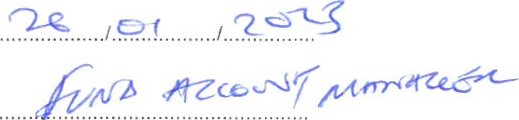 26/01/2023
FUND ACCOUNT MANAGER